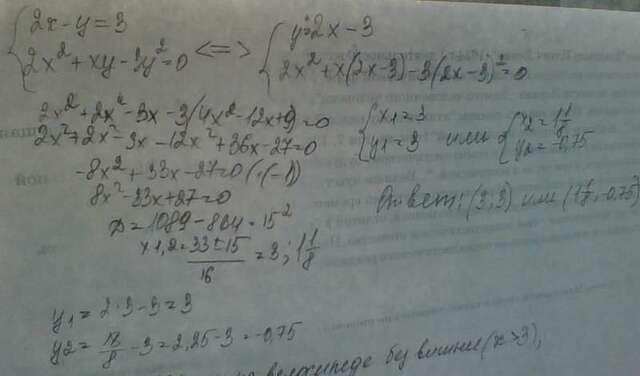 { 2x - y = 3
{ 2x² + xy - 3y² = 0 <=> { y = 2x - 3
{ 2x² + x(2x-3) - 3(2x-3)² = 0
2x² + 2x² - 3x - 3(4x² - 12x + 9) = 0
2x² + 2x² - 3x - 12x² + 36x - 27 = 0
-8x² + 33x - 27 = 0 (·(-1))
8x² - 33x + 27 = 0
D = 1089 - 864 = 15²
x1,2 = (33 ± 15)/16 = 3; 1 1/8
y1 = 2·3 - 3 = 3
y2 = 18/8 - 3 = 2,25 - 3 = -0,75
{ x1 = 3
{ y1 = 3 или { x2 = 1 1/8
{ y2 = -0,75
Ответ: (3; 3) или (1 1/8; -0,75)
велосипеде (x > 3),